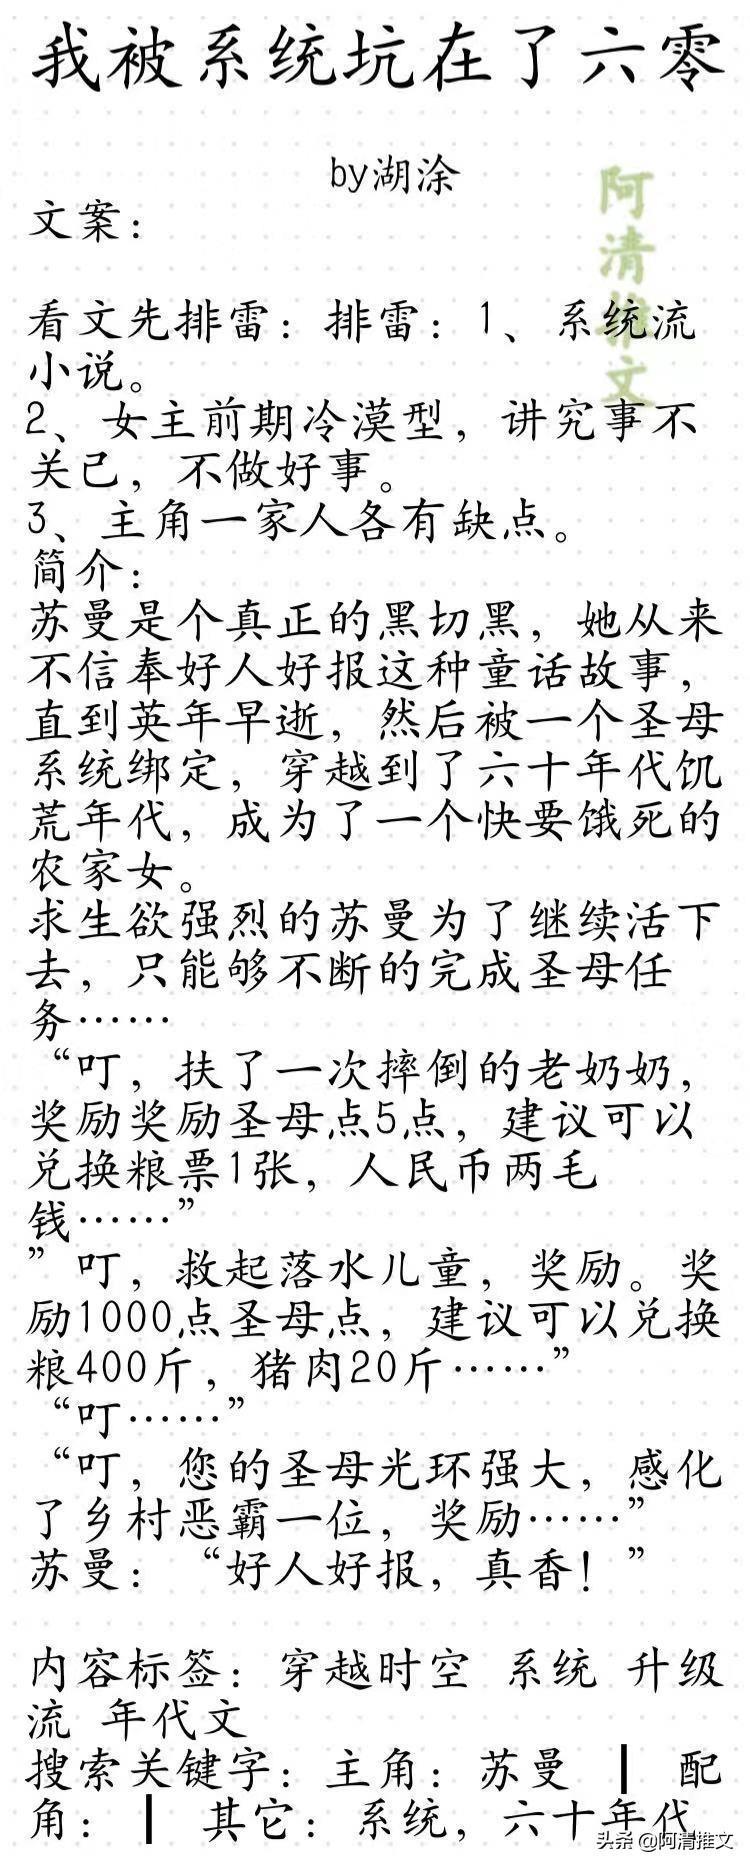 我被系统坑在了六零
by湖涂
阿清推文
文案：
看文先排雷：排雷：1、系统流
小说。
2、女主前期冷漠型，讲究事不
关己，不做好事。
3、主角一家人各有缺点。
简介：
苏曼是个真正的黑切黑，她从来
不信奉好人好报这种童话故事，
直到英年早逝，然后被一个圣母
系统绑定，穿越到了六十年代饥
荒年代，成为了一个快要饿死的
农家女。
求生欲强烈的苏曼为了继续活下
去，只能够不断的完成圣母任
务……
“叮，扶了一次摔倒的老奶奶，
奖励奖励圣母点5点，建议可以
兑换粮票1张，人民币两毛
钱……”
”叮，救起落水儿童，奖励。奖
励1000点圣母点，建议可以兑换
粮400斤，猪肉20斤……”
“叮……”
“叮，您的圣母光环强大，感化
了乡村恶霸一位，奖励……”
苏曼：“好人好报，真香！”
内容标签：穿越时空 系统 升级
流 年代文
搜索关键字：主角：苏曼 ┃ 配
角：┃ 其它：系统，六十年代
头条 @阿清推文